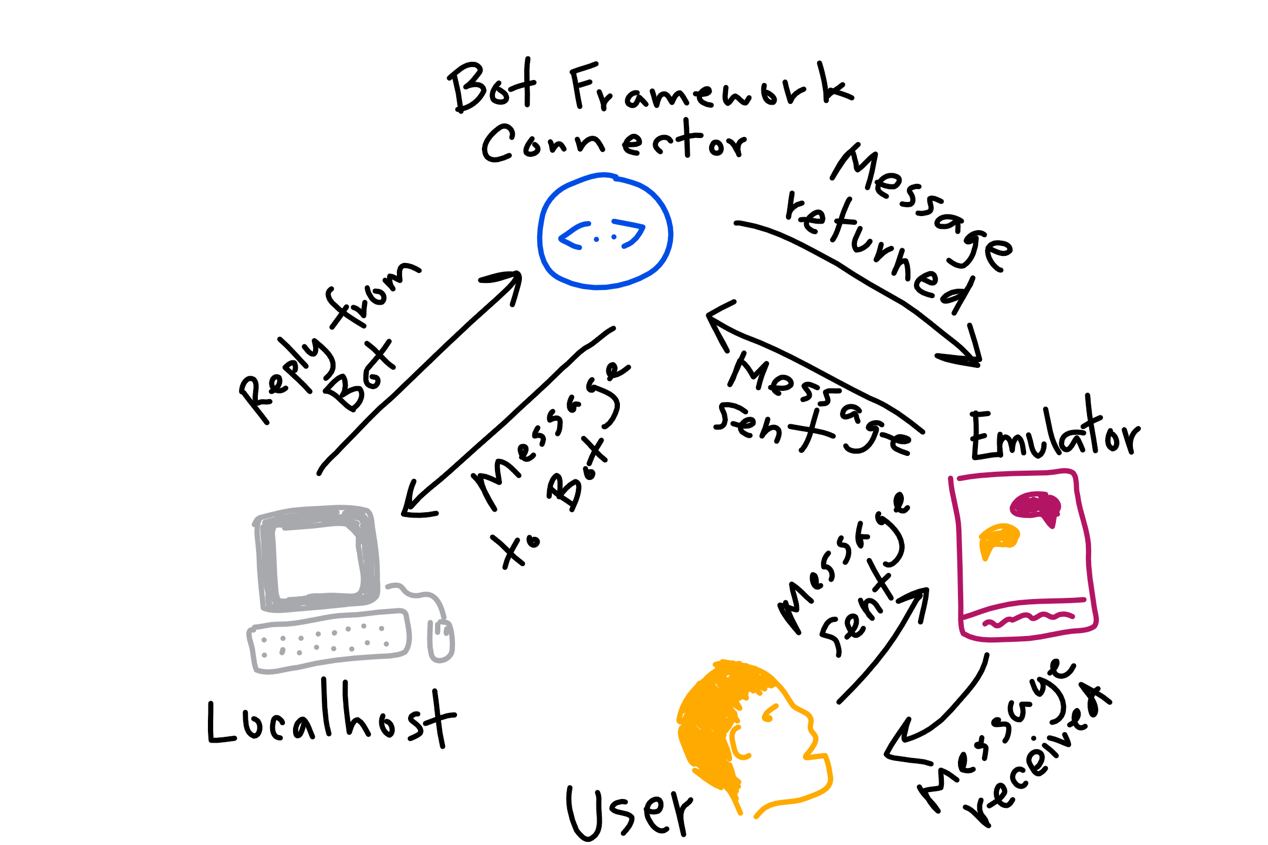 Bot Framework
Connector
Message
returned
Reply from
Bot
Message
to Bot
Message
sent
Emulator
Message
sent
Message
received
Localhost
User